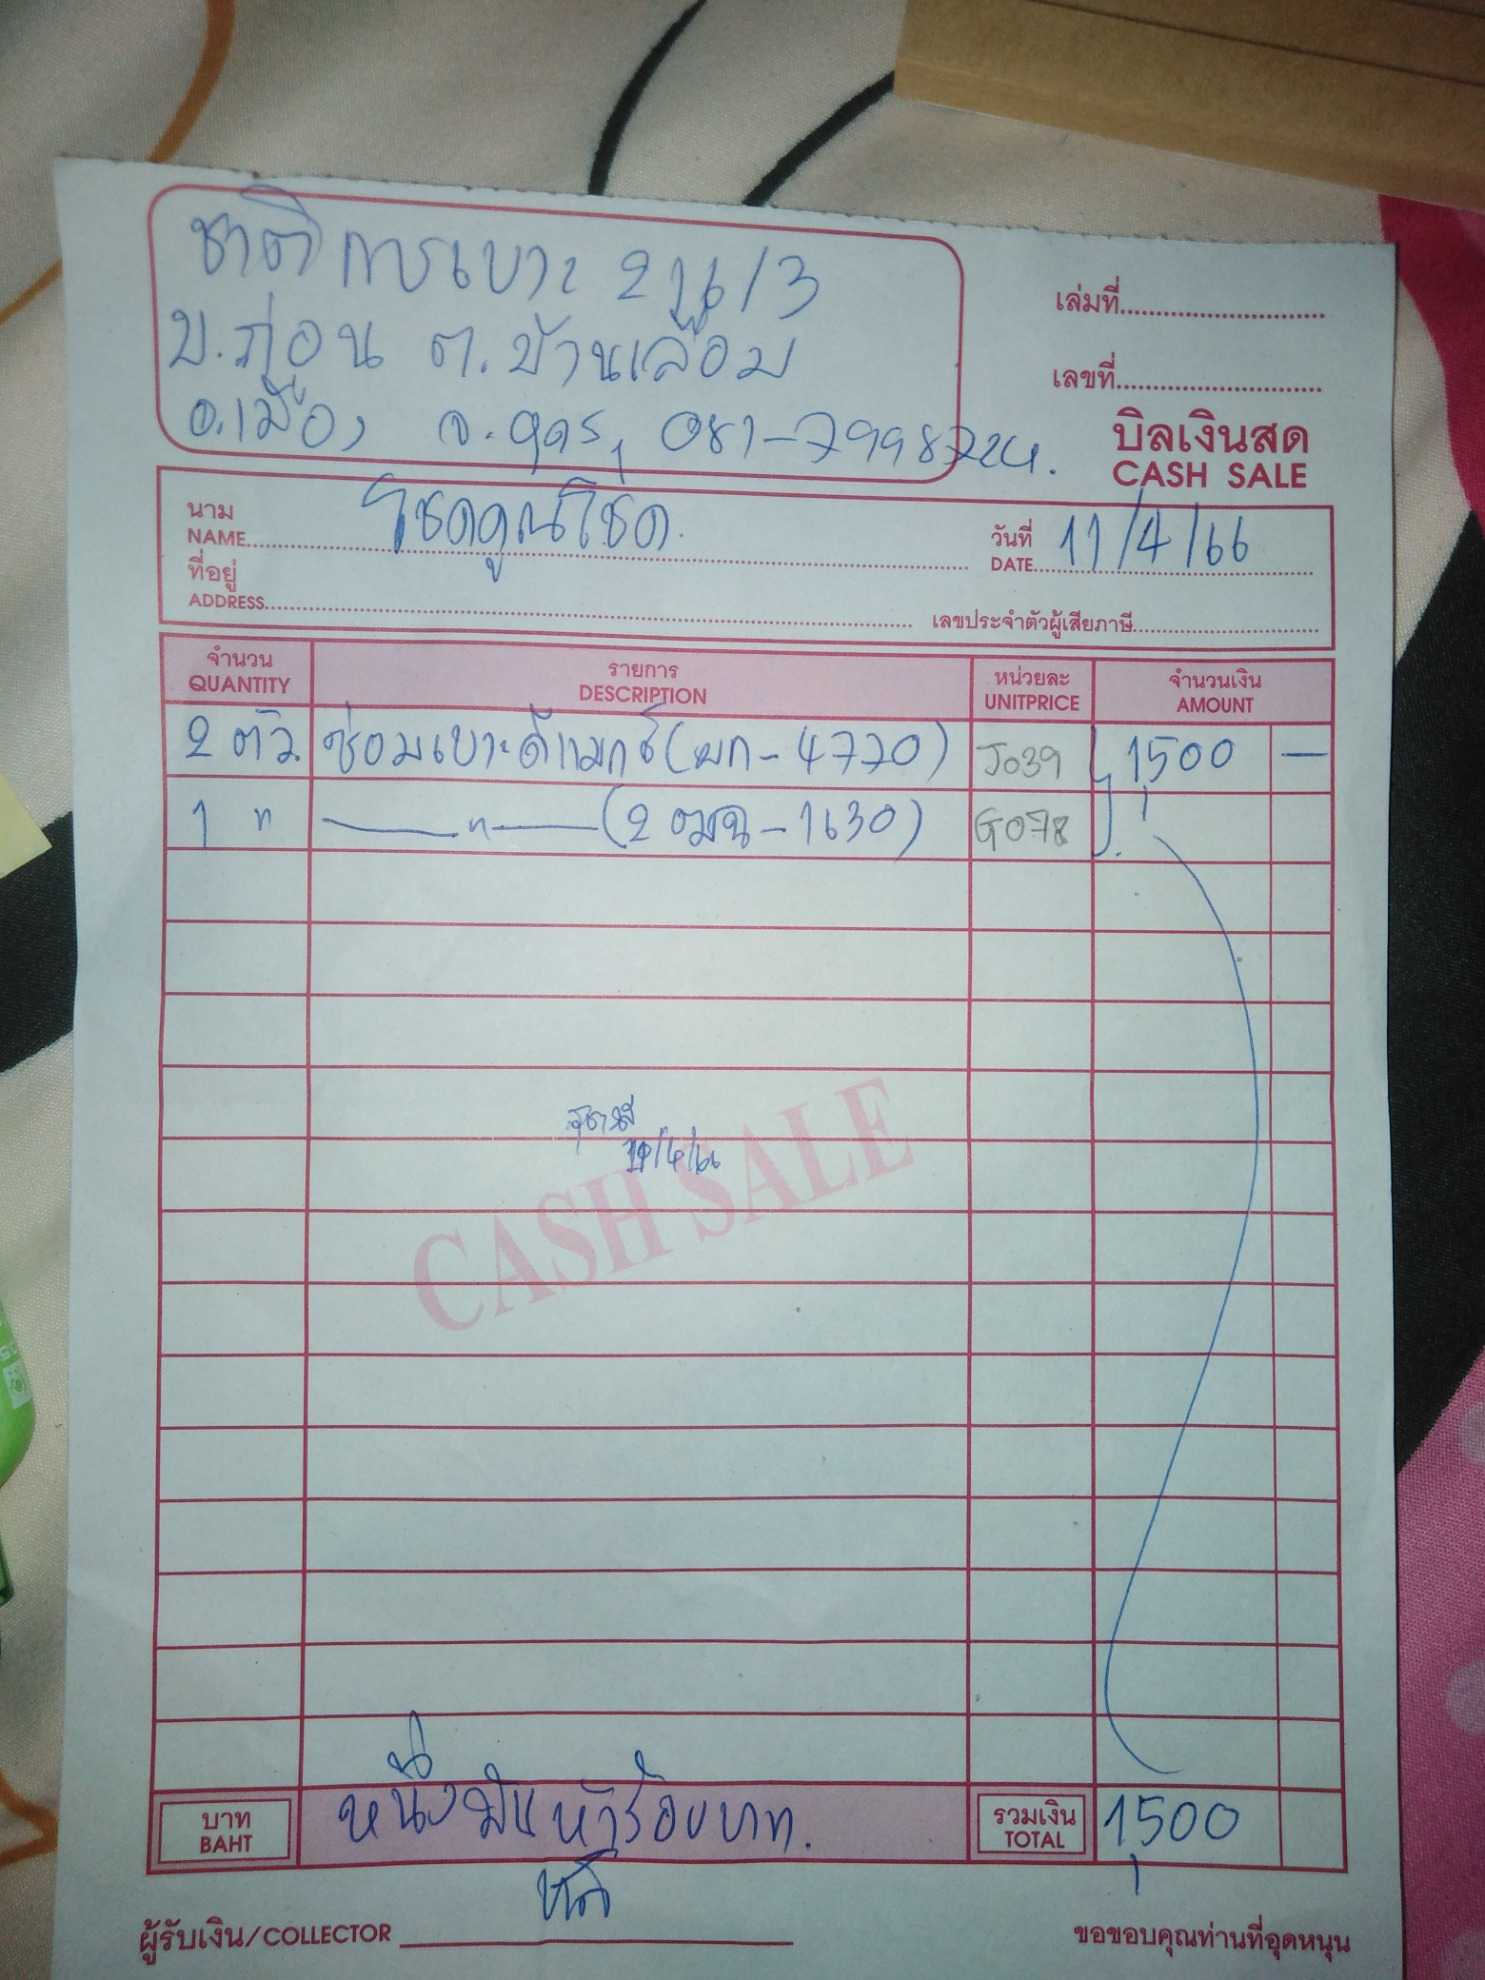 ชาติ การเบาะ 216/3
เล่มที่
บ. ต.บ้านเลื่อม
เลขที่
อ.เมือง จ.อุดร 081-7998724.
บิลเงินสด
CASH SALE
นาม
NAME
โชคคูณโชค
วันที่
DATE
11/4/66
ที่อยู่
ADDRESS
เลขประจำตัวผู้เสียภาษี
จำนวน รายการ หน่วยละ จำนวนเงิน
QUANTITY DESCRIPTION UNITPRICE AMOUNT
2 ตัว ซ่อมเบาะดีแมกซ์ (ผก-4770) J039 1,500 -
1 " " (2 ฒฉ-1630) G078
11/4/66
CASH SALE
บาท
BAHT
หนึ่งพันห้าร้อยบาท.
รวมเงิน
TOTAL
1,500
ชาติ
ผู้รับเงิน/COLLECTOR
ขอขอบคุณท่านที่อุดหนุน